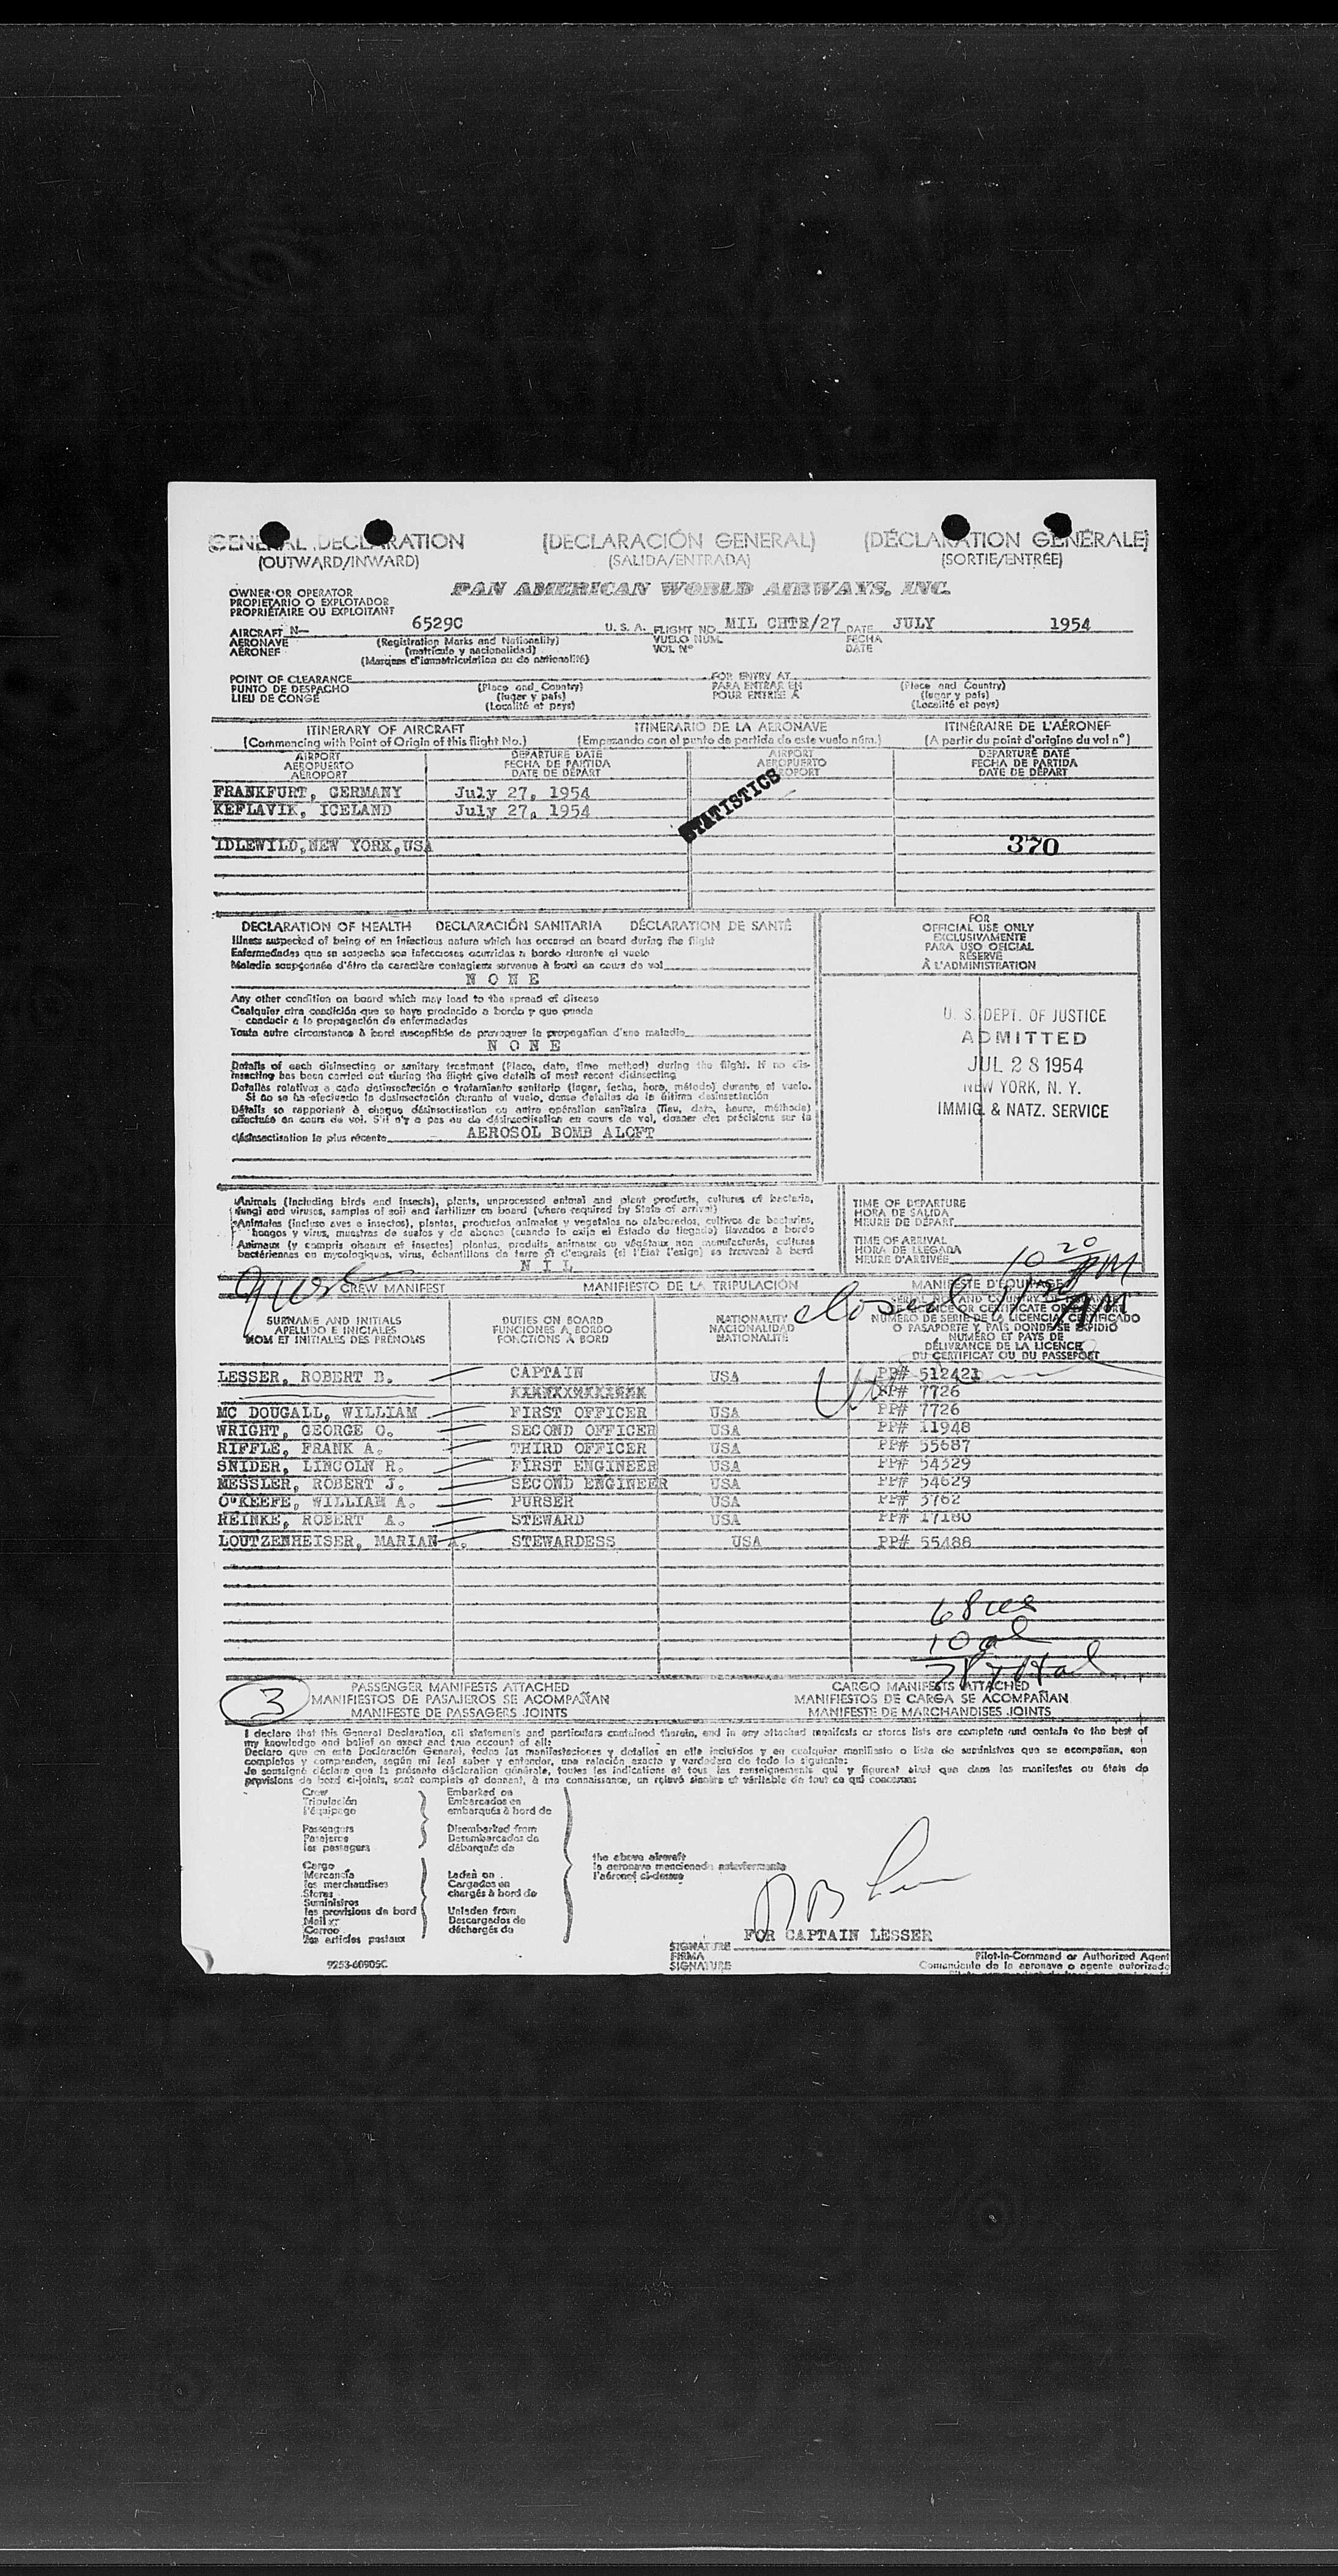 GENERAL DECLARATION (DECLARACIÓN GENERAL) (DÉCLARATION GÉNÉRALE)
(OUTWARD/INWARD) (SALIDA/ENTRADA) (SORTIE/ENTRÉE)
OWNER OR OPERATOR PAN AMERICAN WORLD AIRWAYS, INC.
PROPIETARIO O EXPLOTADOR
PROPRIÉTAIRE OU EXPLOITANT
AIRCRAFT N— 6529C U. S. A. FLIGHT NO. MIL CHTR/27 DATE JULY 1954
AERONAVE (Registration Marks and Nationality) VUELO NUM. FECHA
AÉRONEF (matrícula y nacionalidad) VOL Nº DATE
(Marques d'immatriculation ou de nationalité)
POINT OF CLEARANCE FOR ENTRY AT
PUNTO DE DESPACHO (Place and Country) PARA ENTRAR EN (Place and Country)
LIEU DE CONGÉ (lugar y país) POUR ENTRÉE À (lugar y país)
(Localité et pays) (Localité et pays)
ITINERARY OF AIRCRAFT ITINERARIO DE LA AERONAVE ITINÉRAIRE DE L'AÉRONEF
(Commencing with Point of Origin of this flight No.) (Empezando con el punto de partida de este vuelo núm.) (A partir du point d'origine du vol nº)
AIRPORT DEPARTURE DATE AIRPORT DEPARTURE DATE
AEROPUERTO FECHA DE PARTIDA AEROPUERTO FECHA DE PARTIDA
AÉROPORT DATE DE DÉPART AÉROPORT DATE DE DÉPART
FRANKFURT, GERMANY July 27, 1954
KEFLAVIK, ICELAND July 27, 1954
STATISTICS
IDLEWILD, NEW YORK, USA 370
DECLARATION OF HEALTH DECLARACIÓN SANITARIA DÉCLARATION DE SANTÉ
Illness suspected of being of an infectious nature which has occured on board during the flight
Enfermedades que se sospecha son infecciosas ocurridas a bordo durante el vuelo
Maladie soupçonnée d'être de caractère contagieux survenue à bord en cours de vol
N O N E
Any other condition on board which may lead to the spread of disease
Cualquier otra condición que se haya producido a bordo y que pueda
conducir a la propagación de enfermedades
Toute autre circonstance à bord susceptible de provoquer la propagation d'une maladie
N O N E
Details of each disinsecting or sanitary treatment (Place, date, time method) during the flight. If no dis-
insecting has been carried out during the flight give details of most recent disinsecting
Detalles relativos a cada desinsectación o tratamiento sanitario (lugar, fecha, hora, método) durante el vuelo.
Si no se ha efectuado la desinsectación durante el vuelo, dense detalles de la última desinsectación
Détails se rapportant à chaque désinsectisation ou autre opération sanitaire (lieu, date, heure, méthode)
effectuée en cours de vol. S'il n'y a pas eu de désinsectisation en cours de vol, donner des précisions sur la
désinsectisation la plus récente AEROSOL BOMB ALOFT
FOR
OFFICIAL USE ONLY
EXCLUSIVAMENTE
PARA USO OFICIAL
RÉSERVÉ
À L'ADMINISTRATION
U. S. DEPT. OF JUSTICE
ADMITTED
JUL 28 1954
NEW YORK, N. Y.
IMMIG. & NATZ. SERVICE
Animals (including birds and insects), plants, unprocessed animal and plant products, cultures of bacteria,
fungi and viruses, samples of soil and fertilizer on board (where required by State of arrival)
Animales (incluso aves e insectos), plantas, productos animales y vegetales no elaborados, cultivos de bacterias,
hongos y virus, muestras de suelos y de abonos (cuando lo exija el Estado de llegada) llevados a bordo
Animaux (y compris oiseaux et insectes) plantes, produits animaux ou végétaux non manufacturés, cultures
bactériennes ou mycologiques, virus, échantillons de terre et d'engrais (si l'Etat l'exige) se trouvant à bord
N I L
TIME OF DEPARTURE
HORA DE SALIDA
HEURE DE DÉPART
TIME OF ARRIVAL
HORA DE LLEGADA
HEURE D'ARRIVÉE 10 20 AM
closed
CREW MANIFEST MANIFIESTO DE LA TRIPULACIÓN MANIFESTE D'ÉQUIPAGE
SURNAME AND INITIALS DUTIES ON BOARD NATIONALITY
APELLIDO E INICIALES FUNCIONES A BORDO NACIONALIDAD
NOM ET INITIALES DES PRÉNOMS FONCTIONS À BORD NATIONALITÉ
NUMERO DE SERIE DE LA LICENCIA, CERTIFICADO
O PASAPORTE Y PAIS DONDE SE EXPIDIÓ
NUMÉRO ET PAYS DE
DÉLIVRANCE DE LA LICENCE
DU CERTIFICAT OU DU PASSEPORT
LESSER, ROBERT B. CAPTAIN USA PP# 512421
PP# 7726
MC DOUGALL, WILLIAM FIRST OFFICER USA PP# 7726
WRIGHT, GEORGE O. SECOND OFFICER USA PP# 11948
RIFFLE, FRANK A. THIRD OFFICER USA PP# 55687
SNIDER, LINCOLN R. FIRST ENGINEER USA PP# 54329
MESSLER, ROBERT J. SECOND ENGINEER USA PP# 54629
O'KEEFE, WILLIAM A. PURSER USA PP# 3762
REINKE, ROBERT A. STEWARD USA PP# 17180
LOUTZENHEISER, MARIAN A. STEWARDESS USA PP# 55488
68 usc
10 al
78 total
3 PASSENGER MANIFESTS ATTACHED CARGO MANIFESTS ATTACHED
MANIFIESTOS DE PASAJEROS SE ACOMPAÑAN MANIFIESTOS DE CARGA SE ACOMPAÑAN
MANIFESTE DE PASSAGERS JOINTS MANIFESTE DE MARCHANDISES JOINTS
I declare that this General Declaration, all statements and particulars contained therein, and in any attached manifests or stores lists are complete and contain to the best of
my knowledge and belief an exact and true account of all:
Declaro que en esta Declaración General, todas las manifestaciones y detalles en ella incluídos y en cualquier manifiesto o lista de suministros que se acompañan, son
completos y comprenden, según mi leal saber y entender, una relación exacta y verdadera de todo lo siguiente:
Je soussigné déclare que la présente déclaration générale, toutes les indications et tous les renseignements qui y figurent ainsi que dans les manifestes ou états de
provisions de bord ci-joints, sont complets et donnent, à ma connaissance, un relevé sincère et véritable de tout ce qui concerne:
Crew Embarked on
Tripulación Embarcados en
l'équipage embarqués à bord de
Passengers Disembarked from
Pasajeros Desembarcados de
les passagers débarqués de
the above aircraft
la aeronave mencionada anteriormente
l'aéronef ci-dessus
Cargo
Mercancía Laden on
les merchandises Cargados en
Stores chargés à bord de
Suministros
les provisions de bord Unladen from
Mail Descargados de
Correo déchargés de
les articles postaux
FOR CAPTAIN LESSER
SIGNATURE
FIRMA Pilot-in-Command or Authorized Agent
SIGNATURE Comandante de la aeronave o agente autorizado
9253-60905C